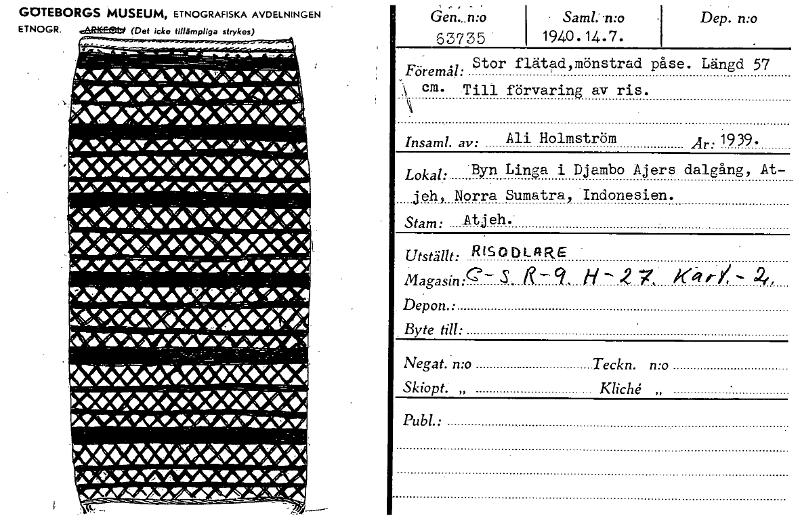 GÖTEBORGS MUSEUM, ETNOGRAFISKA AVDELNINGEN
ETNOGR. ARKEOL. (Det icke tillämpliga strykes)
Gen. n:o Saml. n:o Dep. n:o
63735 1940.14.7.
Föremål: Stor flätad,mönstrad påse. Längd 57
cm. Till förvaring av ris.
Insaml. av: Ali Holmström År: 1939.
Lokal: Byn Linga i Djambo Ajers dalgång, At-
jeh, Norra Sumatra, Indonesien.
Stam: Atjeh.
Utställt: RISODLARE
Magasin: C-S. R-9. H-27. Kart.-2.
Depon.:
Byte till:
Negat. n:o Teckn. n:o
Skiopt. „ Kliché „
Publ.: